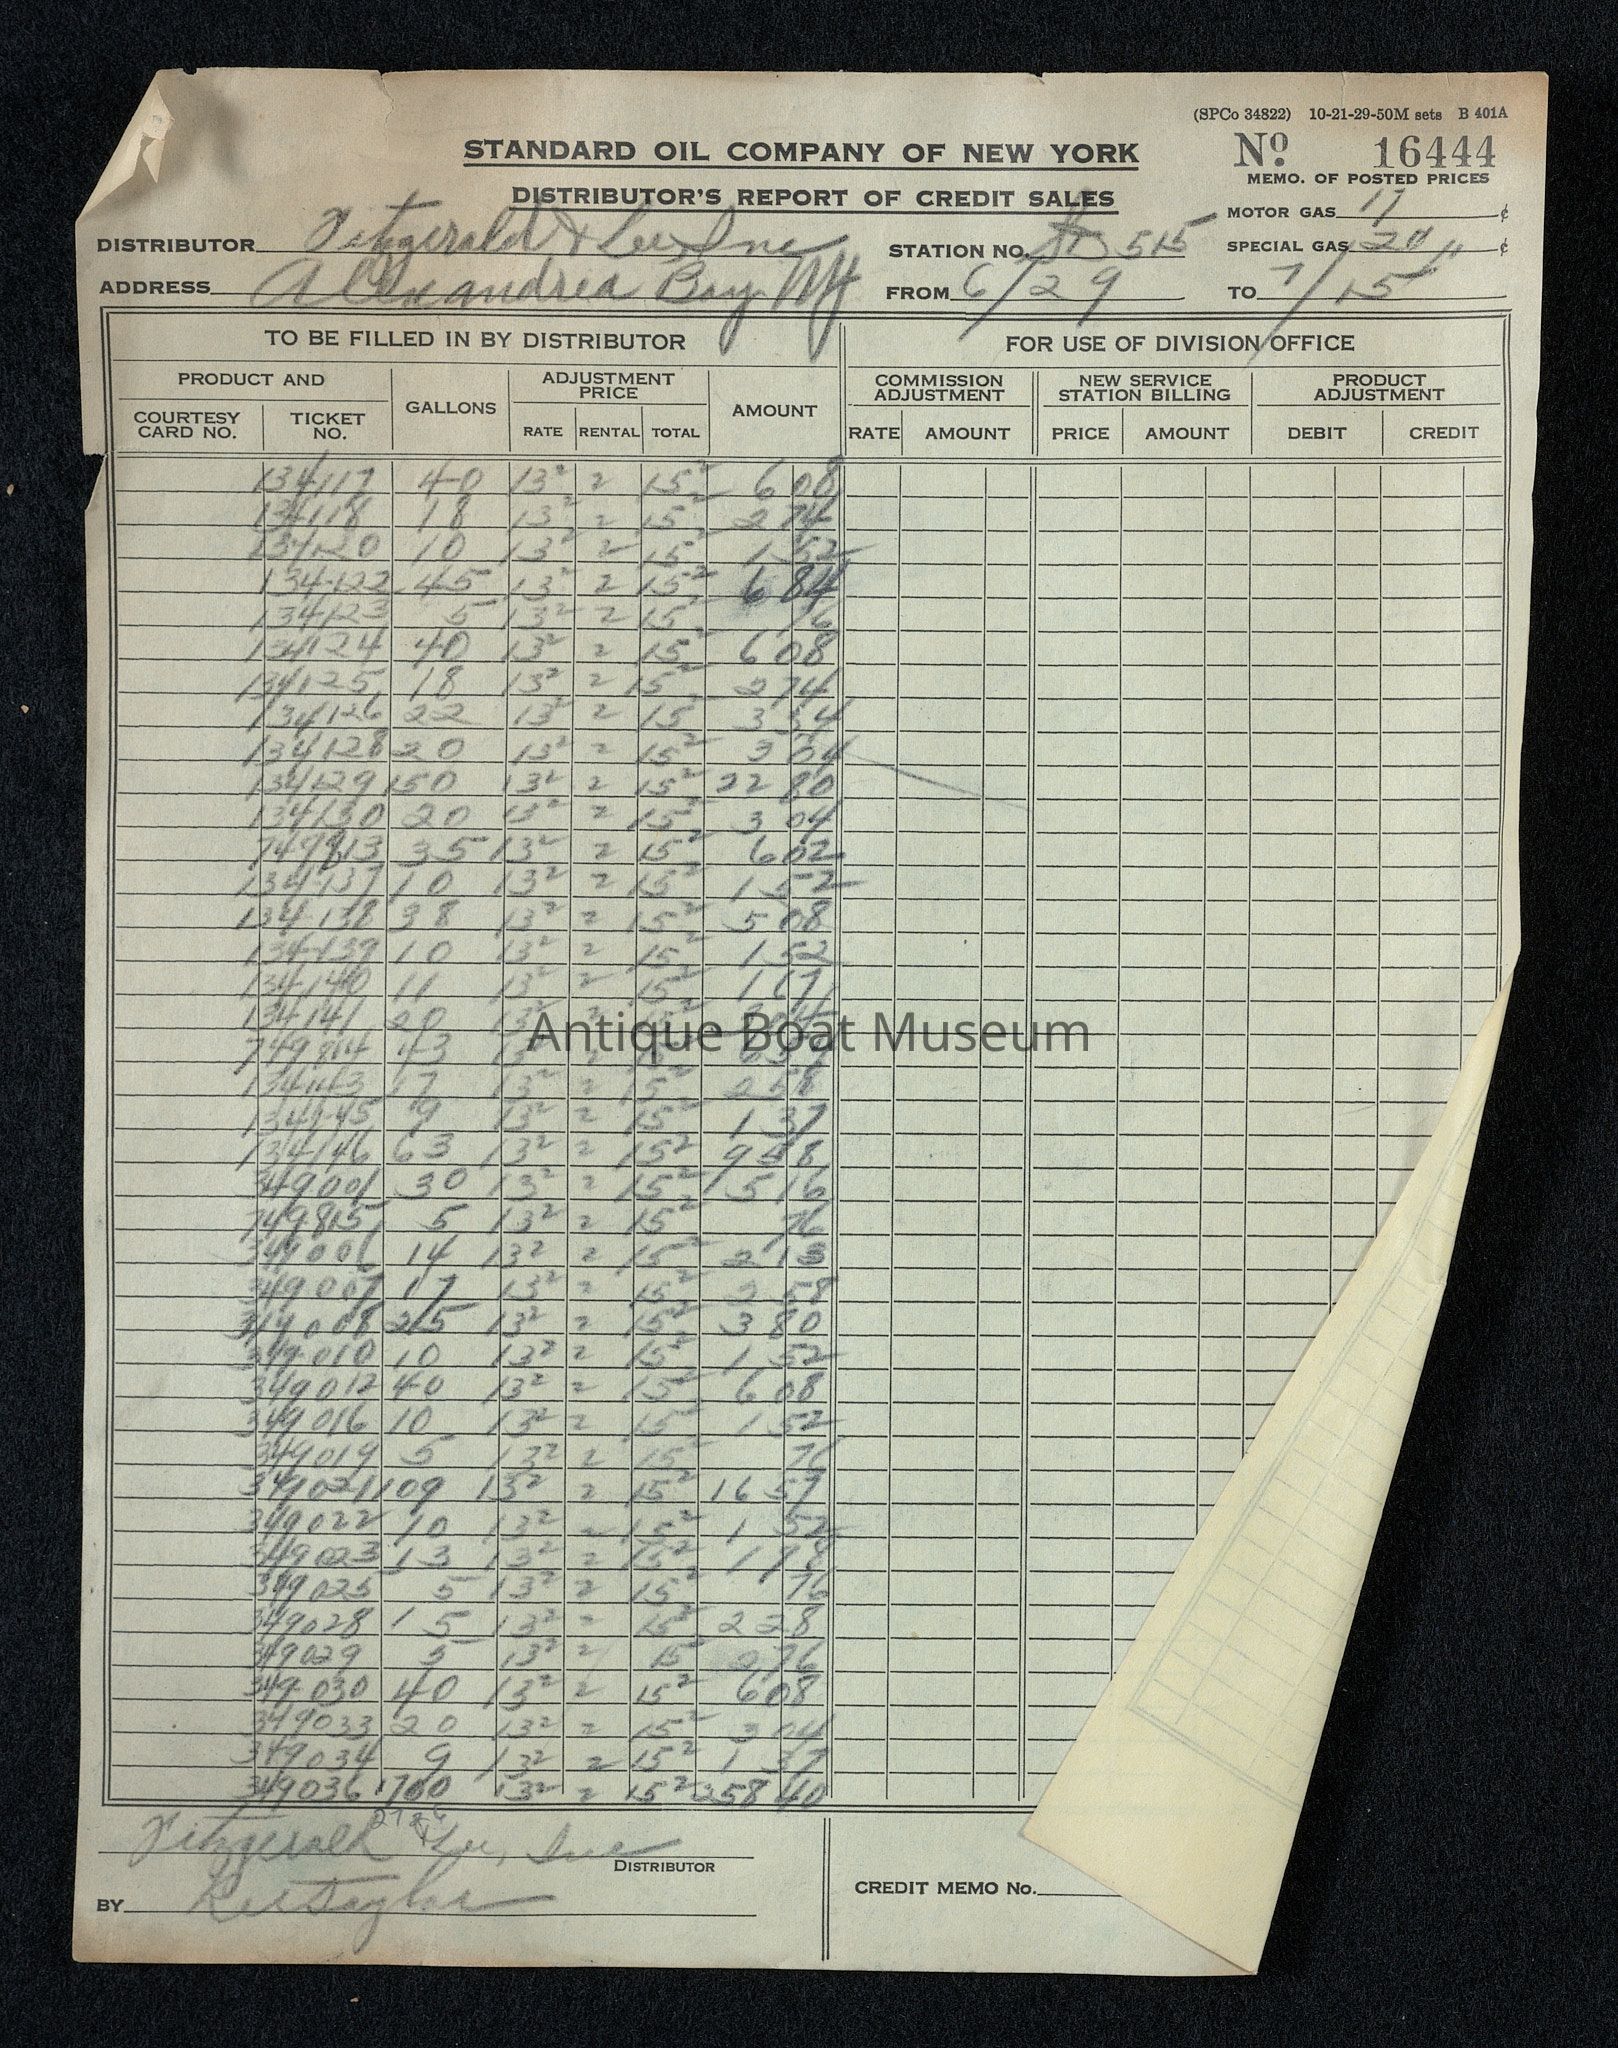 (SPCo 34822) 10-21-29-50M sets B 401A
STANDARD OIL COMPANY OF NEW YORK
No. 16444
DISTRIBUTOR'S REPORT OF CREDIT SALES
MEMO. OF POSTED PRICES
MOTOR GAS 17 ¢
DISTRIBUTOR Fitzgerald & Lee Inc
STATION NO. 515
SPECIAL GAS 20 " ¢
ADDRESS Alexandria Bay NY
FROM 6/29 TO 7/15
TO BE FILLED IN BY DISTRIBUTOR
FOR USE OF DIVISION OFFICE
PRODUCT AND
COURTESY CARD NO. TICKET NO. GALLONS ADJUSTMENT PRICE RATE RENTAL TOTAL AMOUNT
COMMISSION ADJUSTMENT RATE AMOUNT
NEW SERVICE STATION BILLING PRICE AMOUNT
PRODUCT ADJUSTMENT DEBIT CREDIT
134117 40 13² 2 15² 6 08
134118 18 13² 2 15² 2 74
134120 10 13² 2 15² 1 52
134122 45 13² 2 15² 6 84
134123 5 13² 2 15² 76
134124 40 13² 2 15² 6 08
134125 18 13² 2 15² 2 74
134126 22 13² 2 15² 3 34
134128 20 13² 2 15² 3 04
134129 150 13² 2 15² 22 80
134130 20 13² 2 15² 3 04
749813 35 13² 2 15² 6 02
134137 10 13² 2 15² 1 52
134138 38 13² 2 15² 5 08
134139 10 13² 2 15² 1 52
134140 11 13² 2 15² 1 67
134141 20 13² 2 15²
749814 43 13² 2 15²
134143 17 13² 2 15² 2 58
134145 9 13² 2 15² 1 37
134146 63 13² 2 15² 9 58
349001 30 13² 2 15² 5 16
749815 5 13² 2 15² 76
349006 14 13² 2 15² 2 13
349007 17 13² 2 15² 2 58
349008 25 13² 2 15² 3 80
349010 10 13² 2 15² 1 52
349012 40 13² 2 15² 6 08
349016 10 13² 2 15² 1 52
349019 5 13² 2 15² 76
349021 109 13² 2 15² 16 57
349022 10 13² 2 15² 1 52
349023 13 13² 2 15² 1 98
349025 5 13² 2 15² 76
349028 15 13² 2 15² 2 28
349029 5 13² 2 15² 76
349030 40 13² 2 15² 6 08
349033 20 13² 2 15² 3 04
349034 9 13² 2 15² 1 37
349036 1700 13² 2 15² 258 40
Antique Boat Museum
Fitzgerald & Lee, Inc
DISTRIBUTOR
BY
CREDIT MEMO No.